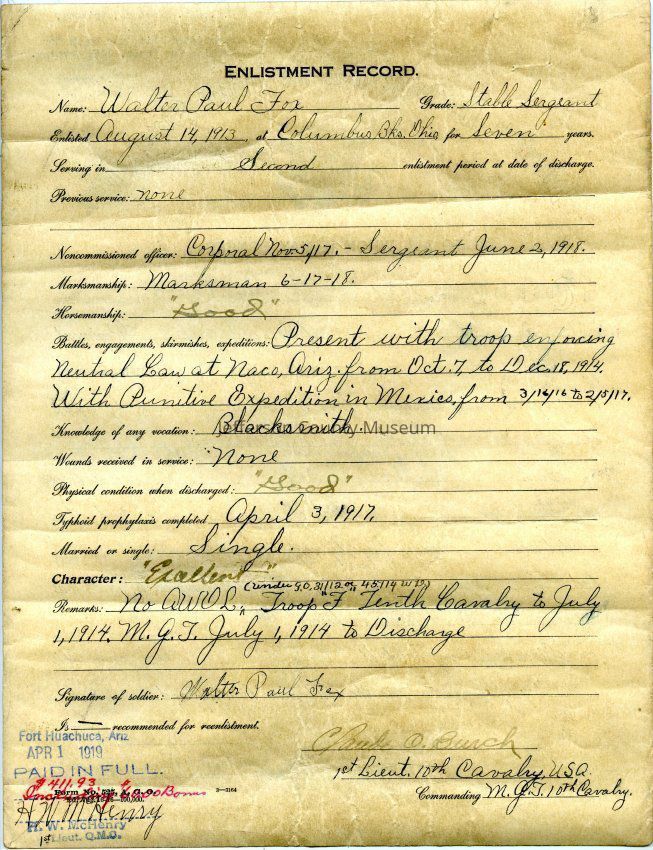 ENLISTMENT RECORD.
Name: Walter Paul Fox Grade: Stable Sergeant
Enlisted August 14, 1913, at Columbus Bks. Ohio for Seven years.
Serving in Second enlistment period at date of discharge.
Previous service: none
Noncommissioned officer: Corporal Nov. 5/17. - Sergeant June 2, 1918.
Marksmanship: Marksman 6-17-18.
Horsemanship: "Good"
Battles, engagements, skirmishes, expeditions: Present with troop enforcing
Neutral Law at Naco, Ariz. from Oct. 7, to Dec. 18, 1914.
With Punitive Expedition in Mexico, from 3/16/16 to 2/5/17.
Knowledge of any vocation: Blacksmith.
Jefferson County Museum
Wounds received in service: None
Physical condition when discharged: "Good"
Typhoid prophylaxis completed April 3, 1917.
Married or single: Single.
Character: "Excellent"
(under G.O. 31/12 or 45/14 W.D.)
Remarks: No AWOL, Troop "F" Tenth Cavalry to July
1, 1914. M.G.T. July 1, 1914 to Discharge
Signature of soldier: Walter Paul Fox
Is — recommended for reenlistment.
Fort Huachuca, Ariz
APR 1 1919
PAID IN FULL.
$411.93
Bonus
Form No. 525, A. G. O.
3-3164
1st Lieut. 10th Cavalry, USA.
Commanding M.G.T. 10th Cavalry.
H. W. McHenry
H. W. McHenry
1st Lieut. Q.M.C.